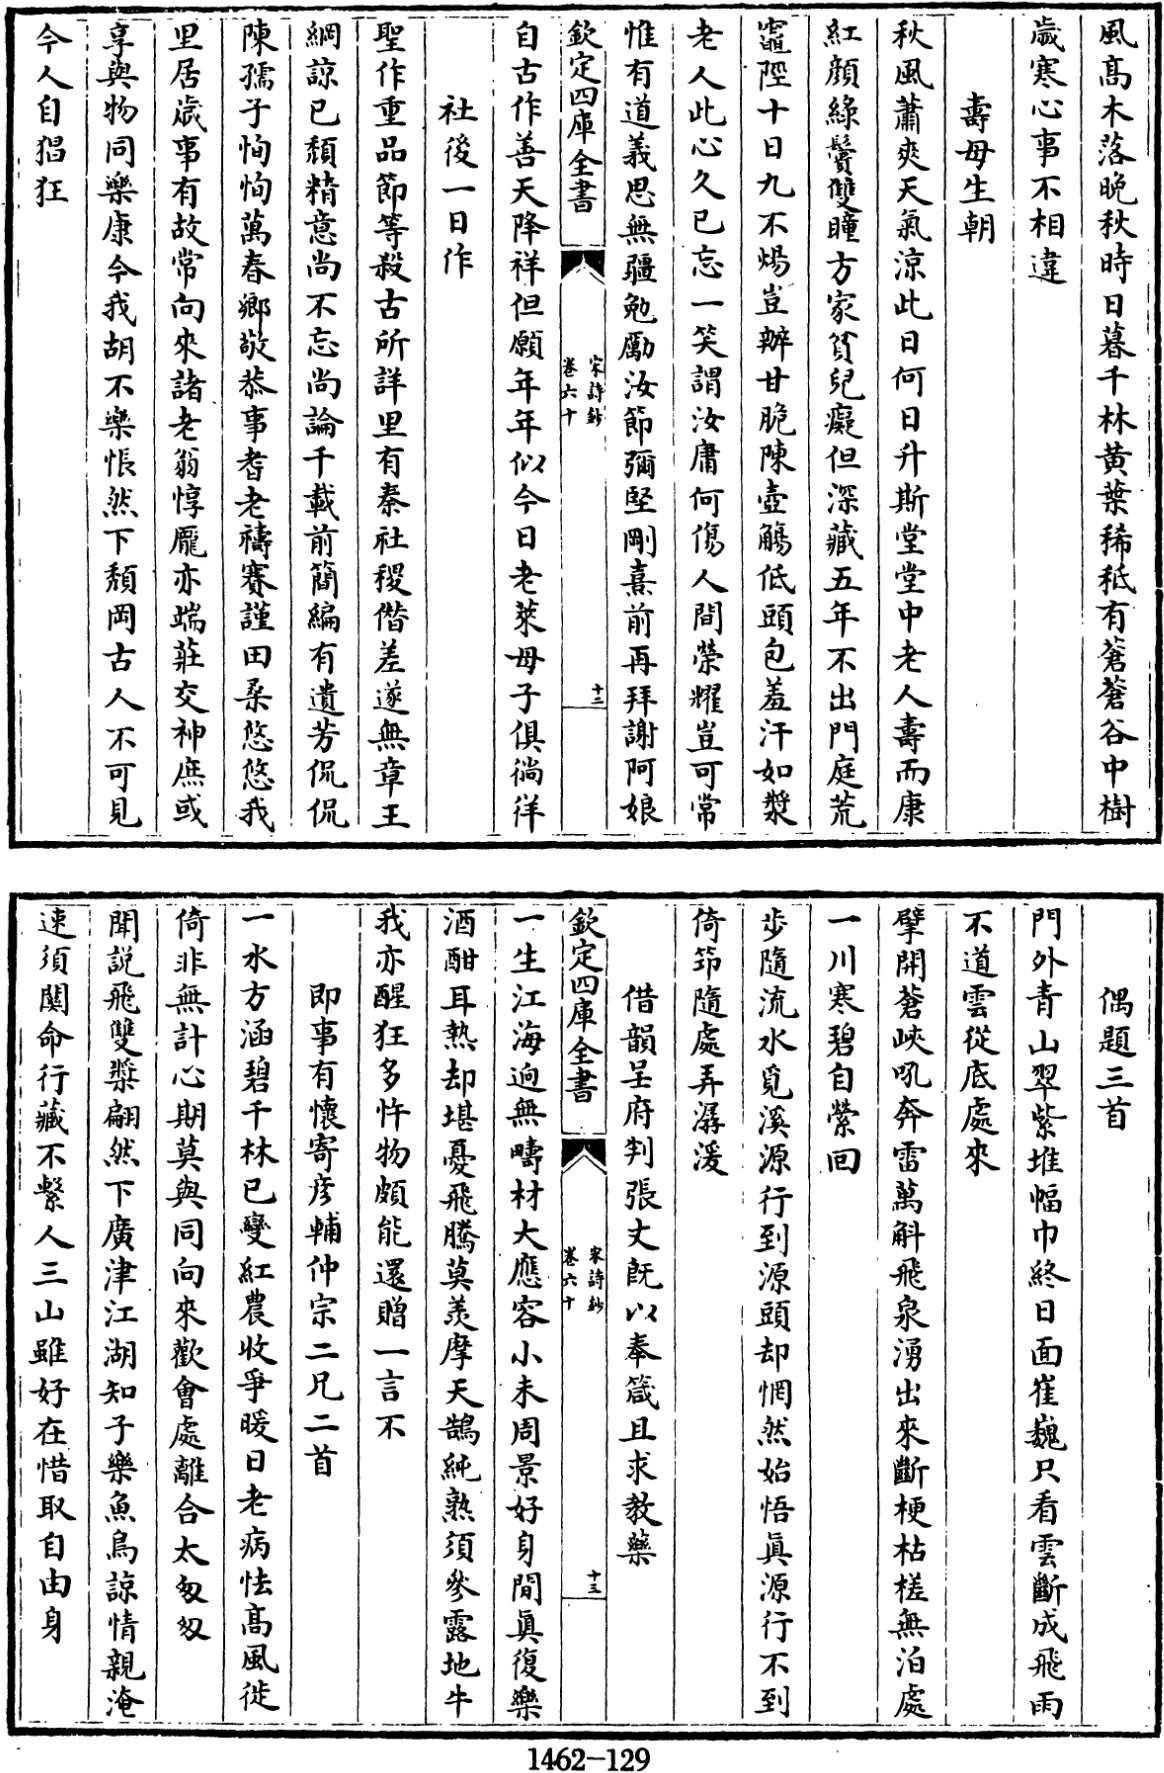 風髙木落晚秋時日暮千林黄葉稀秪有蒼蒼谷中樹
歲寒心事不相違
壽母生朝
秋風蕭爽天氣涼此日何日升斯堂堂中老人壽而康
紅顔綠鬢雙瞳方家貧兒癡但深藏五年不出門庭荒
竈陘十日九不煬豈辦甘脆陳壺觴低頭包羞汗如漿
老人此心久已忘一笑謂汝庸何傷人間榮耀豈可常
惟有道義思無疆勉勵汝節彌堅剛熹前再拜謝阿娘
欽定四庫全書
宋詩鈔
卷六十
十二
自古作善天降祥但願年年似今日老萊母子俱徜徉
社後一日作
聖作重品節等殺古所詳里有秦社稷僭差遂無章王
綱諒已頽精意尚不忘尚論千載前簡編有遺芳侃侃
陳孺子恂恂萬春鄉敬恭事耆老禱賽謹田桑悠悠我
里居歲事有故常向來諸老翁惇龎亦端莊交神庶或
享與物同樂康今我胡不樂悵然下頽岡古人不可見
今人自猖狂
偶題三首
門外青山翠紫堆幅巾終日面崔巍只看雲斷成飛雨
不道雲從底處來
擘開蒼峽吼奔雷萬斛飛泉湧出來斷梗枯槎無泊處
一川寒碧自縈回
步隨流水覓溪源行到源頭却惘然始悟眞源行不到
倚筇隨處弄潺湲
借韻呈府判張丈旣以奉箴且求教藥
欽定四庫全書
宋詩鈔
卷六十
十三
一生江海逈無疇材大應容小未周景好身閒眞復樂
酒酣耳熱却堪憂飛騰莫羨摩天鵠純熟須參露地牛
我亦醒狂多忤物頗能還贈一言不
即事有懷寄彥輔仲宗二兄二首
一水方涵碧千林已變紅農收爭暖日老病怯髙風徙
倚非無計心期莫與同向來歡會處離合太匆匆
聞說飛雙槳翩然下廣津江湖知子樂魚鳥諒情親淹
速須闗命行藏不繫人三山雖好在惜取自由身
1462—129